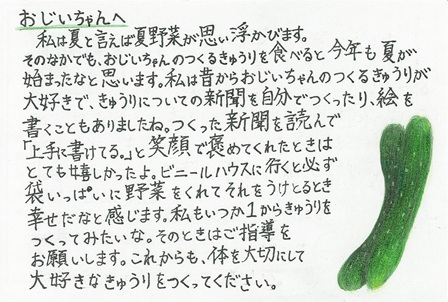 おじいちゃんへ
私は夏と言えば夏野菜が思い浮かびます。
そのなかでも、おじいちゃんのつくるきゅうりを食べると今年も夏が
始まったなと思います。私は昔からおじいちゃんのつくるきゅうりが
大好きで、きゅうりについての新聞を自分でつくったり、絵を
書くこともありましたね。つくった新聞を読んで
「上手に書けてる。」と笑顔で褒めてくれたときは
とても嬉しかったよ。ビニールハウスに行くと必ず
袋いっぱいに野菜をくれてそれをうけとるとき
幸せだなと感じます。私もいつか1からきゅうりを
つくってみたいな。そのときはご指導を
お願いします。これからも、体を大切にして
大好きなきゅうりをつくってください。